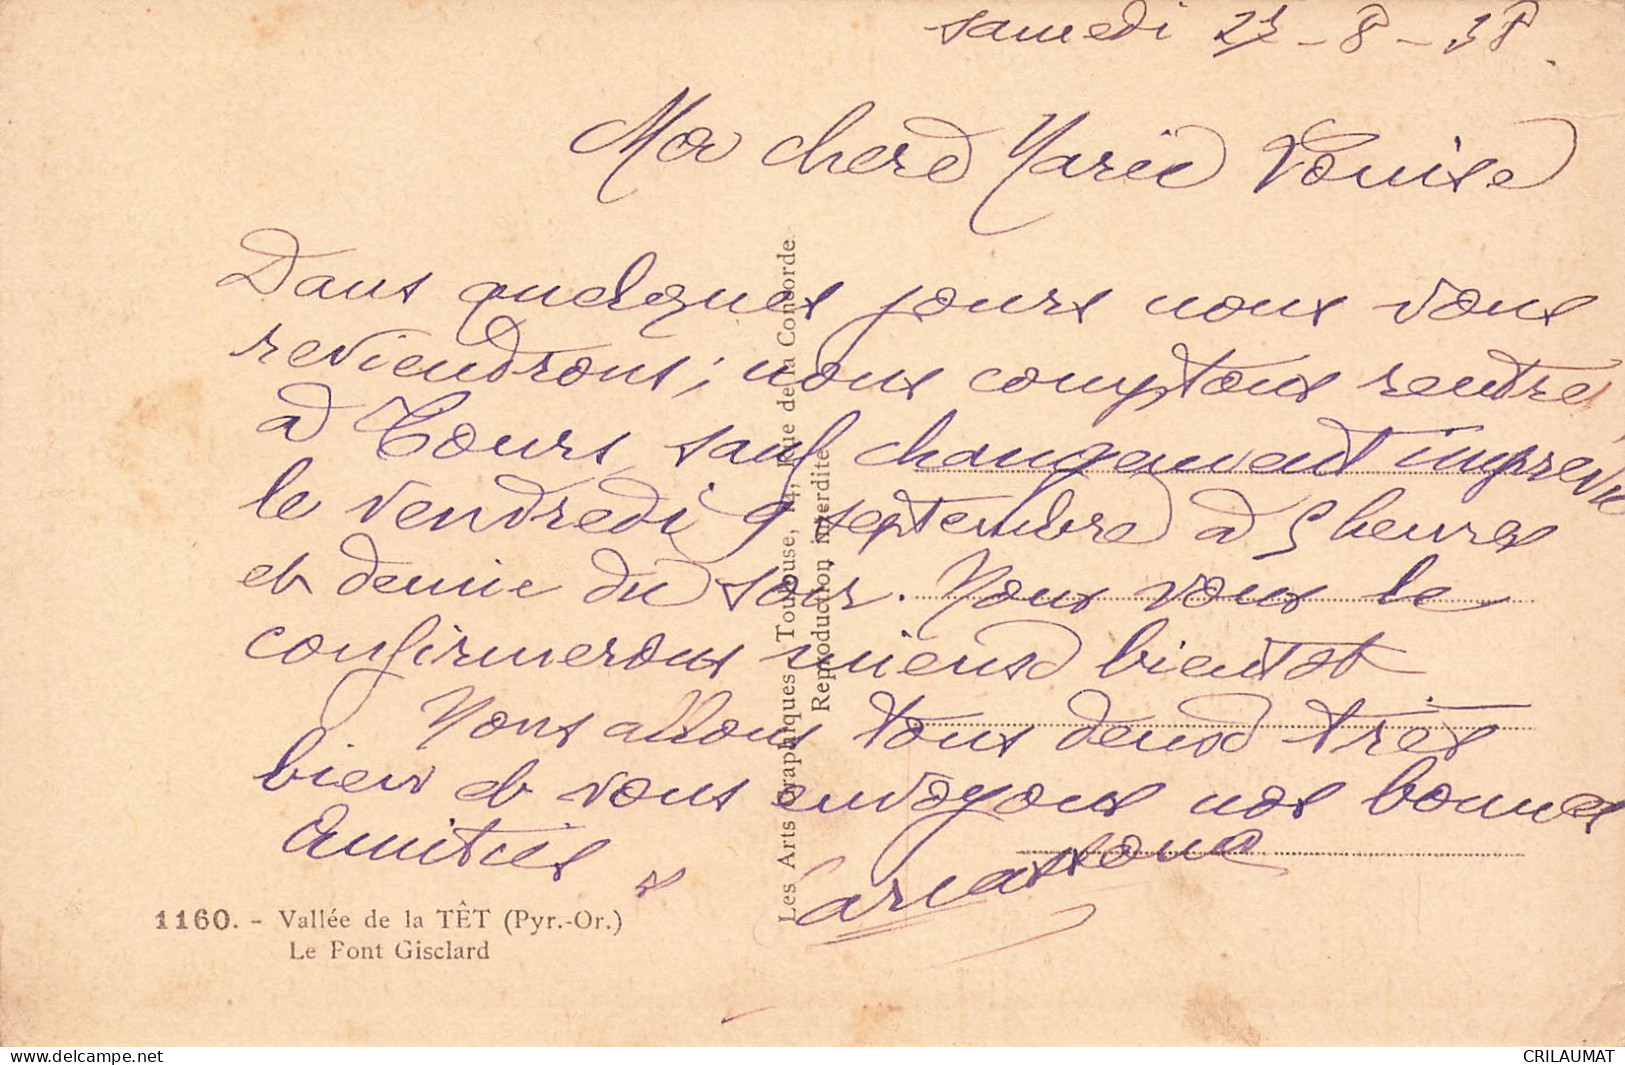 samedi 27-8-38.
Ma chère Marie Louise
Dans quelques jours nous vous
reviendrons; nous comptons rentrer
à Tours sauf changement imprévu
le vendredi 9 septembre à 5 heures
et demie du soir. Nous vous le
confirmerons mieux bientot
Nous allons tous deux très
bien et vous envoyons nos bonnes
amitiés
1160. - Vallée de la TÊT (Pyr.-Or.)
Le Pont Gisclard
Les Arts Graphiques, Toulouse, 14, Rue de la Concorde
Reproduction interdite
delcampe.net
CRILAUMAT